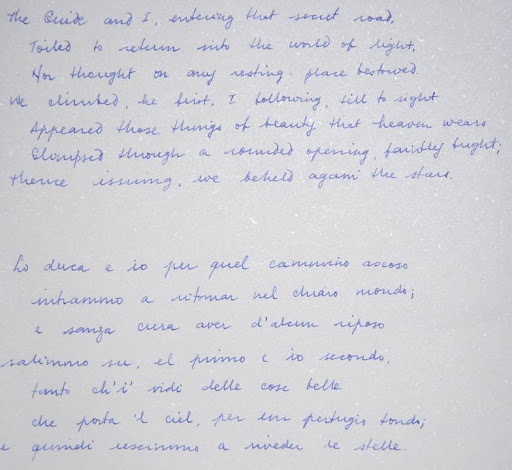 The Guide and I, entering that secret road,
Toiled to return into the world of light,
Nor thought on any resting-place bestowed.
We climbed, he first, I following, till to sight
Appeared those things of beauty that heaven wears
Glimpsed through a rounded opening, faintly bright;
Thence issuing, we beheld again the stars.
Lo duca e io per quel cammino ascoso
intrammo a ritornar nel chiaro mondo;
e sanza cura aver d'alcun riposo
salimmo su, el primo e io secondo,
tanto ch'i' vidi delle cose belle
che porta 'l ciel, per un pertugio tondo;
e quindi uscimmo a riveder le stelle.